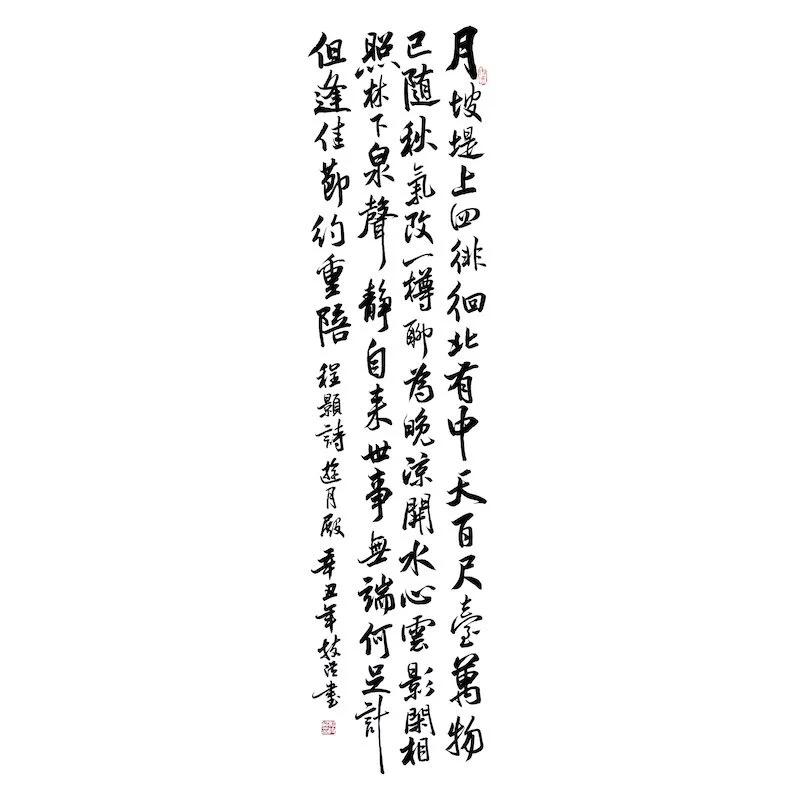 月坡堤上四徘徊北有中天百尺臺萬物
已随秋氣改一樽聊為晚涼開水心雲影閑相
照林下泉聲静自来世事無端何足計
但逢佳節約重陪 程顥詩 遊月殿 辛丑年 书